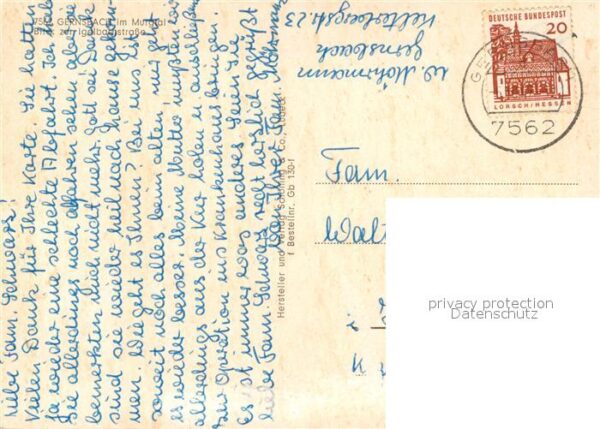 7562 GERNSBACH im Murgtal
Blick zur Igelbachstraße
Liebe Fam. Schwarz!
Vielen Dank für Ihre Karte. Sie hatten
ja wieder eine schlechte Abfahrt. Ich habe
Sie allerdings noch abfahren sehen, aber Sie
bemerkten mich nicht mehr. Gott sei Dank
sind sie wieder heil nach Hause gekom-
men. Wie geht es Ihnen? Bei uns ist
soweit noch alles beim alten, mir geht
es wieder besser. Meine Mutter mußten wir
allerdings aus der Kur holen u. anschließend
zur Operation ins Krankenhaus bringen.
Es ist immer was anderes. Seien Sie
liebe Fam. Schwarz recht herzlich gegrüßt
von Ihrer Fam. Mohrmann
Hersteller und Verlag Schöning & Co., Lübeck
f. Bestellnr. Gb 130-f
W. Mohrmann
Gernsbach
23
DEUTSCHE BUNDESPOST
20
LORSCH/HESSEN
7562
Fam.
privacy protection
Datenschutz